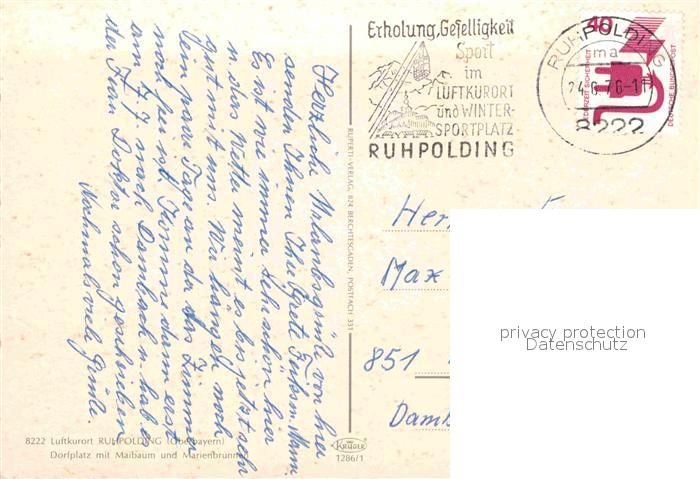 Erholung, Geselligkeit
Sport
im
LUFTKURORT
und WINTER-
SPORTPLATZ
RUHPOLDING
RUHPOLDING
ma
24.6.76-11
8222
40
JEDERZEIT SICHERHEIT
DEUTSCHE BUNDESPOST
Herzliche Urlaubsgrüße von hier
senden Ihnen Ihre Grete
Es ist wie immer sehr schön hier
u. das Wetter meint es bis jetzt sehr
gut mit uns. Wir hängen noch
ein paar Tage an da das Zimmer
noch frei ist. Komme dann erst
am 7.7. nach Dambach u. habe
der Frau Doktor schon geschrieben
Nochmals viele Grüße.
RUPERTI-VERLAG, 824 BERCHTESGADEN, POSTFACH 331
Max
851
Damb
privacy protection
Datenschutz
8222 Luftkurort RUHPOLDING (Oberbayern)
Dorfplatz mit Maibaum und Marienbrunnen
KRÜGER
1286/1